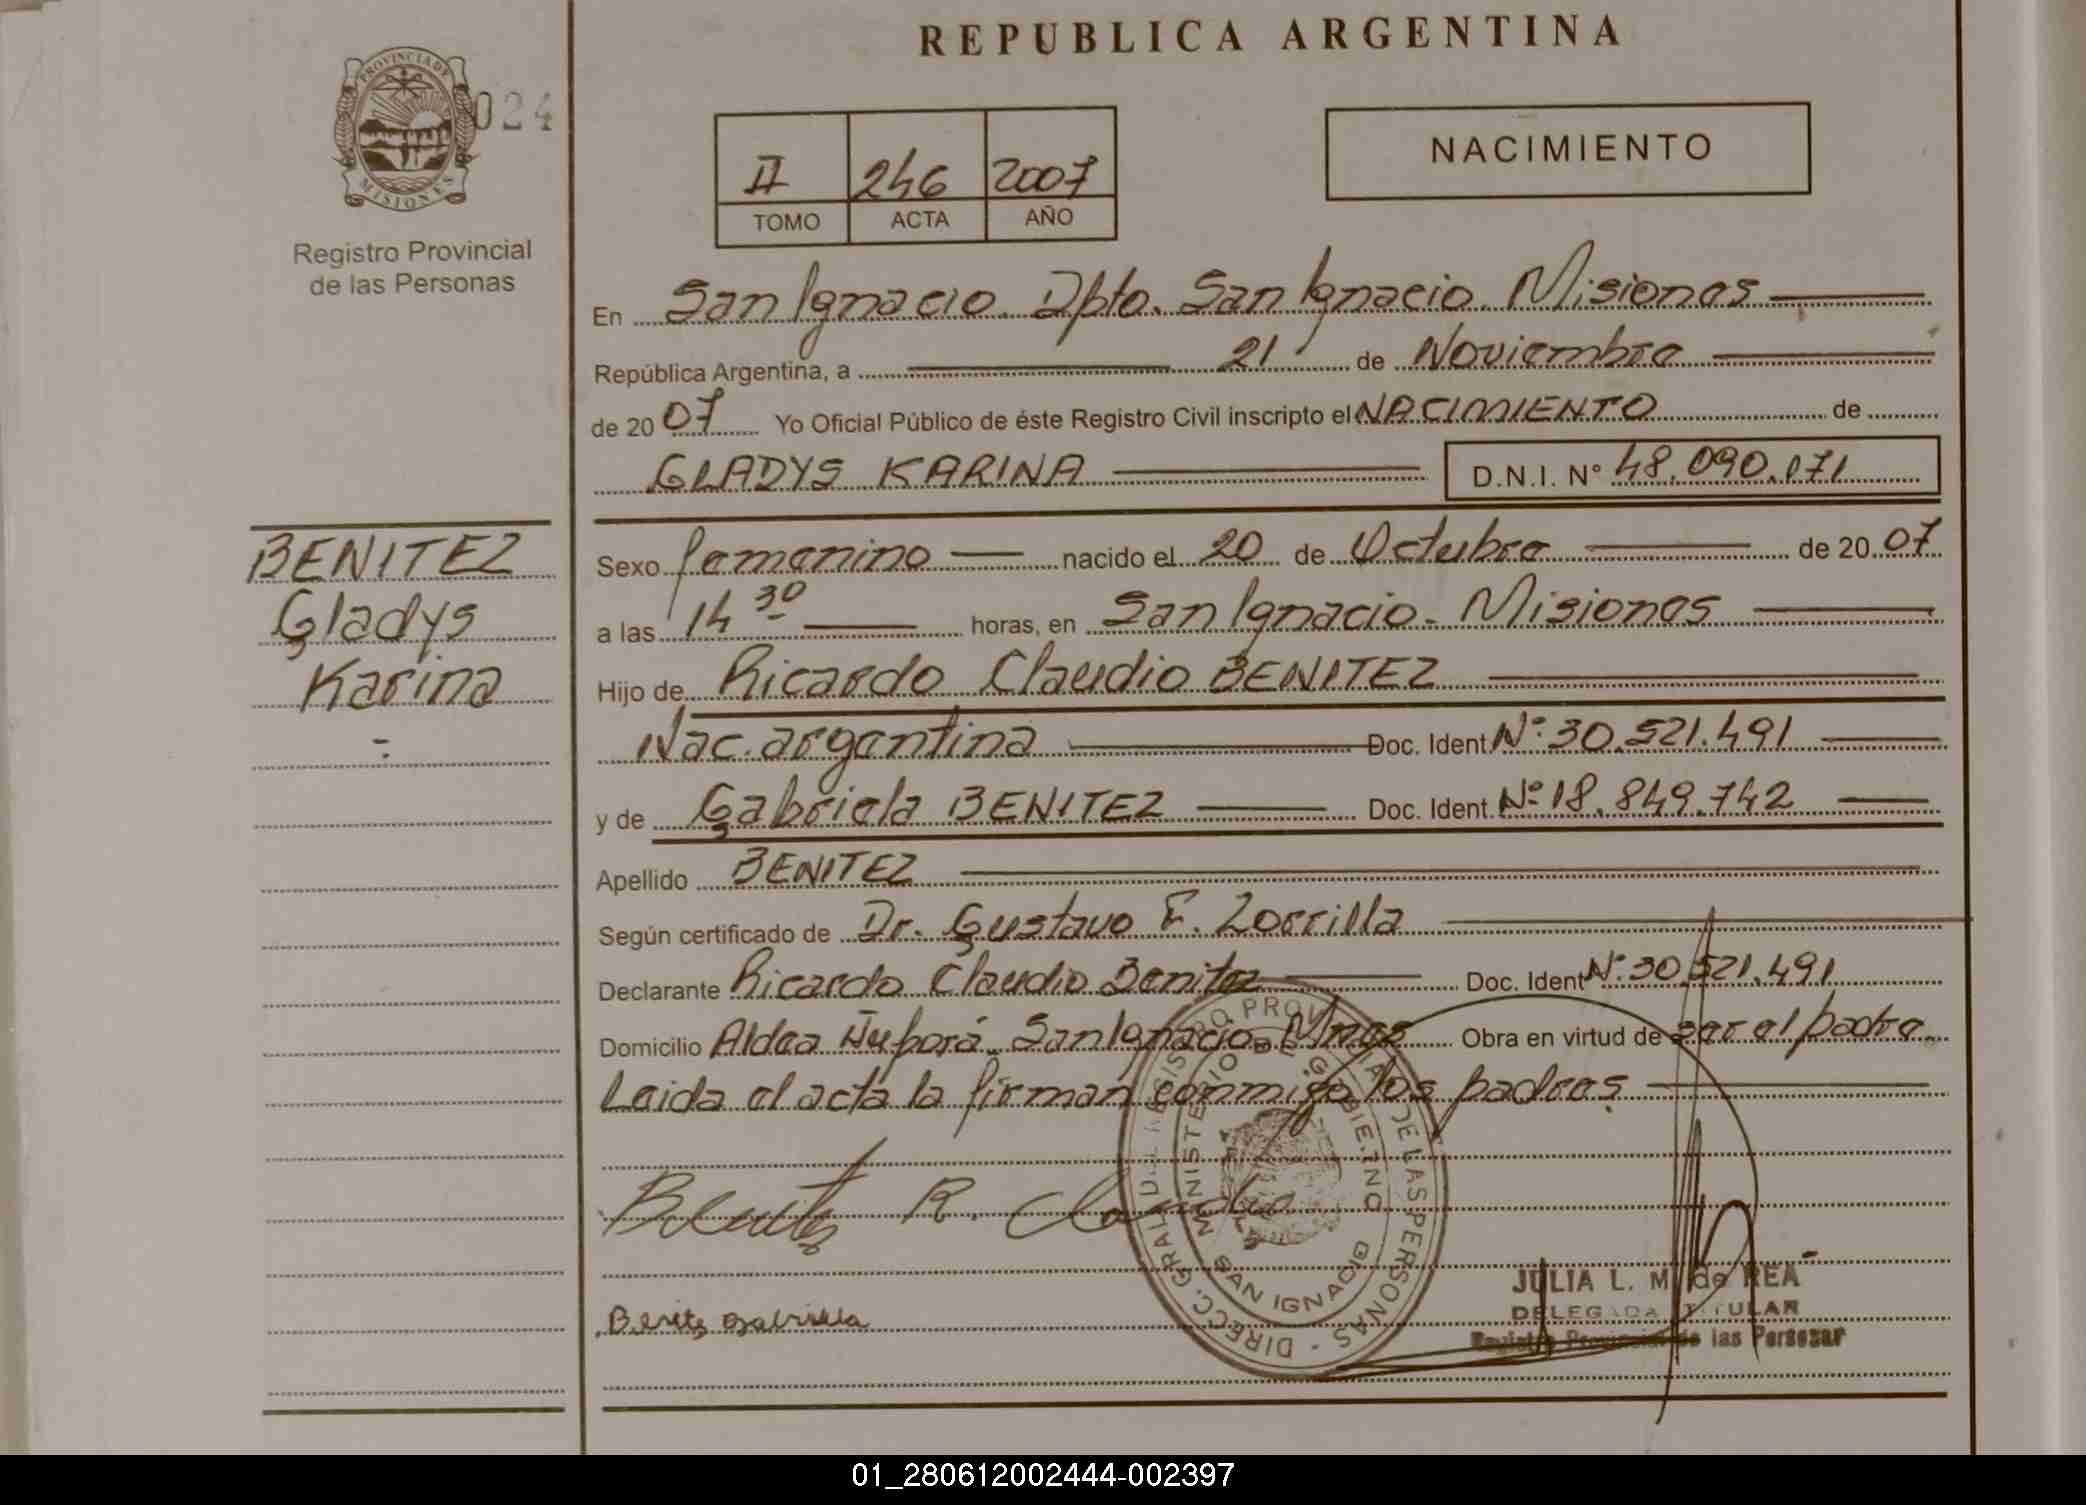 REPUBLICA ARGENTINA
PROVINCIA DE
MISIONES
024
Registro Provincial
de las Personas
II 246 2007
TOMO ACTA AÑO
NACIMIENTO
En San Ignacio. Dpto. San Ignacio. Misiones
República Argentina, a 21 de Noviembre
de 2007 Yo Oficial Público de éste Registro Civil inscripto el NACIMIENTO de
GLADYS KARINA D.N.I. Nº 48.090.171
BENITEZ
Gladys
Karina
Sexo femenino nacido el 20 de Octubre de 2007
a las 14 30 horas, en San Ignacio - Misiones
Hijo de Ricardo Claudio BENITEZ
Nac. argentina Doc. Ident Nº 30.521.491
y de Gabriela BENITEZ Doc. Ident. Nº 18.849.742
Apellido BENITEZ
Según certificado de Dr. Gustavo E. Zorrilla
Declarante Ricardo Claudio Benitez Doc. Ident Nº 30.521.491
Domicilio Aldea Ñuporá. San Ignacio. Mnes Obra en virtud de ser el padre.
Leida el acta la firman conmigo los padres
Benitez R. Claudio
Benitez Gabriela
DIRECC. GRAL. DEL REGISTRO PROVINCIAL DE LAS PERSONAS
MINISTERIO DE GOBIERNO
SAN IGNACIO
JULIA L. M. de REA
DELEGADA TITULAR
Registro Provincial de las Personas
01_280612002444-002397